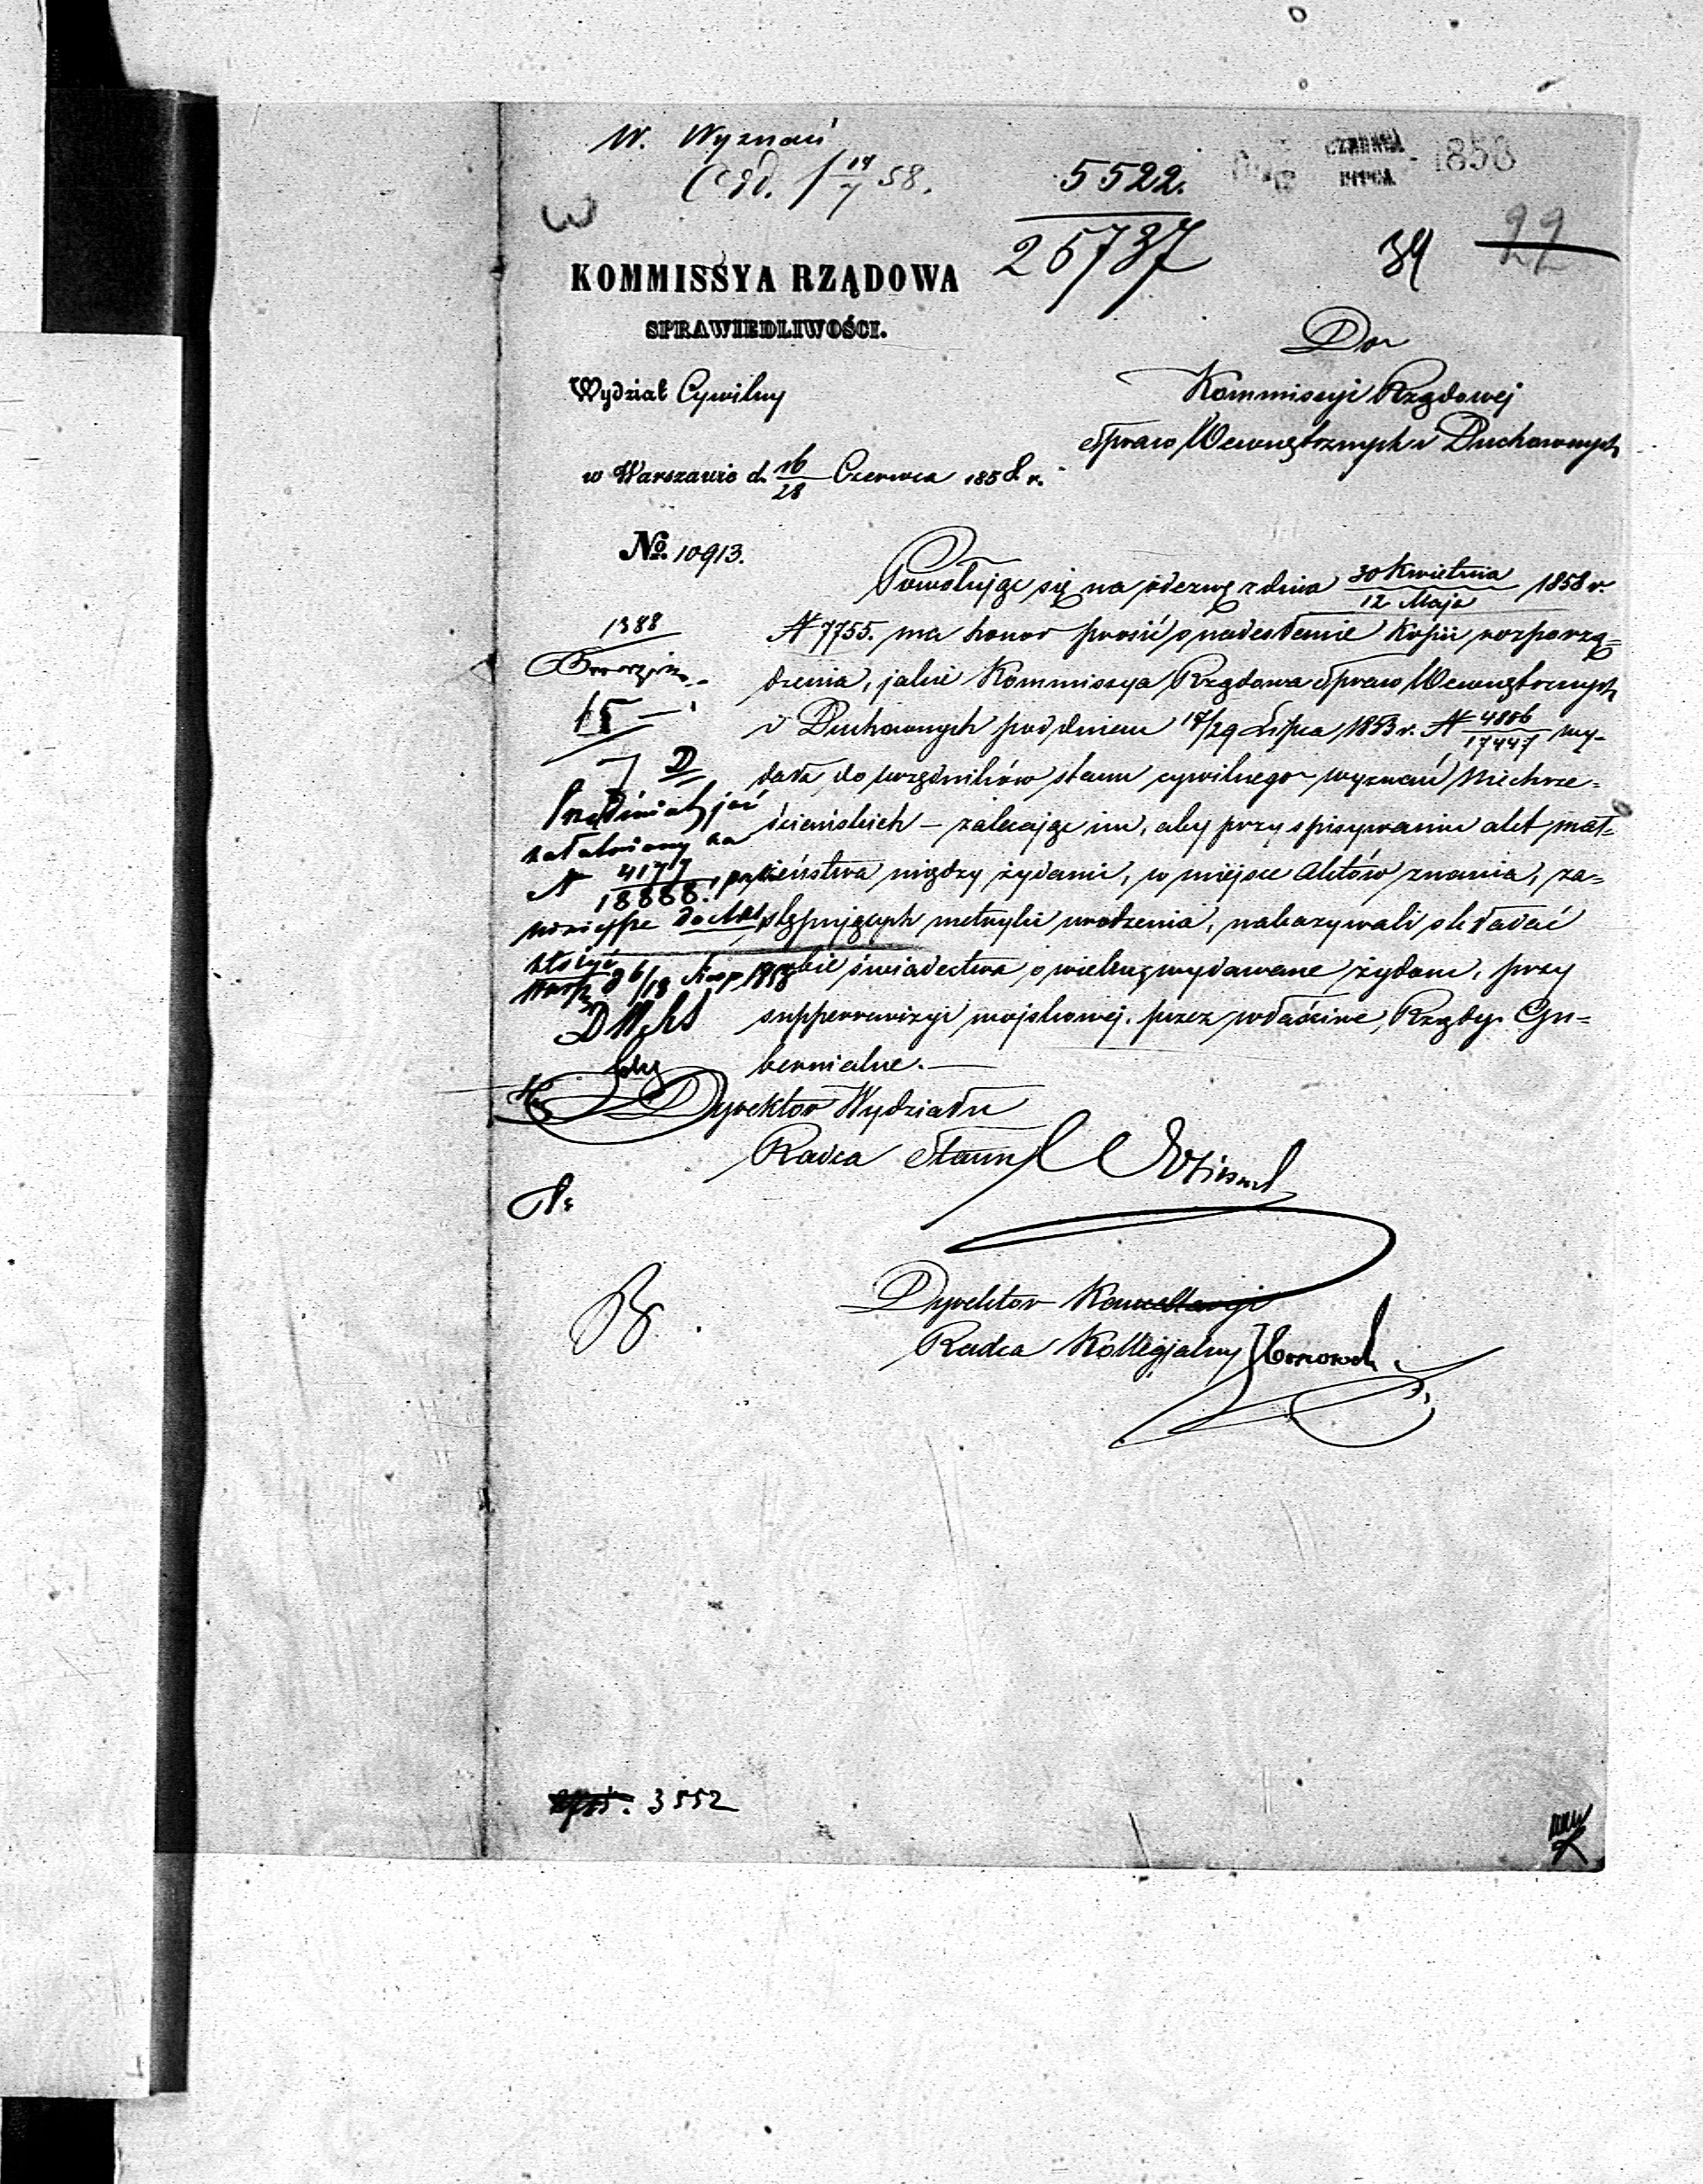 W. Wyznań
5522.
CZERWCA
LIPCA
1858
26737
34
22
KOMMISSYA RZĄDOWA
SPRAWIEDLIWOŚCI.
Do
Kommissyi Rządowej
Spraw Wewnętrznych i Duchownych
Wydział Cywilny
w Warszawie d. 16/28 Czerwca 1858 r.
No. 10913.
Powołując się na odezwę z dnia 30 Kwietnia/12 Maja 1858 r.
N 7755. ma honor prosić o nadesłanie Kopii rozporzą=
dzenia, jakie Kommissya Rządowa Spraw Wewnętrznych
i Duchownych pod dniem 17/29 Lipca 1853 r. N 4886/17447 wy-
dała do urzędników stanu cywilnego wyznań Niechrze=
ściańskich – zalecając im, aby przy spisywaniu akt mał=
żeństwa między żydami, w miejsce Aktów znania, za=
stępujących metryki urodzenia, nakazywali składać
sobie świadectwa o wieku, wydawane żydom, przy
supperrewizyi wojskowej, przez właściwe Rządy Gu=
bernialne. —
1388
15
D
Przedmiot już
załatwiony na
N 4177/18888
Dyrektor Wydziału
Radca Stanu
Dyrektor Kancellaryi
Radca Kollegjalny
3552